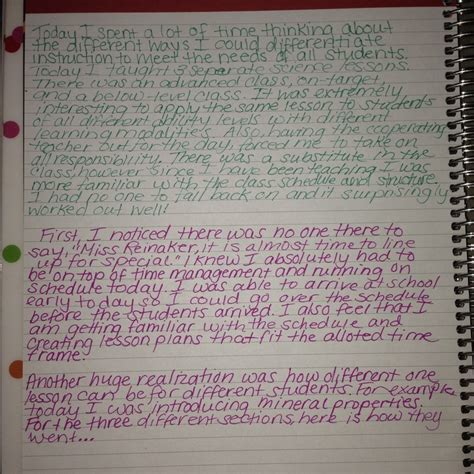 Today I spent a lot of time thinking about
the different ways I could differentiate
instruction to meet the needs of all students.
Today I taught 3 seperate science lessons.
There was an advanced class, on-target,
and a below-level class. It was extremely
interesting to apply the same lesson to students
of all different ability levels with different
learning modalities. Also, having the cooperating
teacher out for the day, forced me to take on
all responsibility. There was a substitute in the
class, however since I have been teaching I was
more familiar with the class schedule and structure.
I had no one to fall back on and it surprisingly
worked out well!
First, I noticed there was no one there to
say, "Miss Keinaker, it is almost time to line
up for special." I knew I absolutely had to
be on top of time management and running on
schedule today. I was able to arrive at school
early today so I could go over the schedule
before the students arrived. I also feel that I
am getting familiar with the schedule and
creating lesson plans that fit the alloted time
frame.
Another huge realization was how different one
lesson can be for different students. For example,
today I was introducing mineral properties.
For the three different sections, here is how they
went...